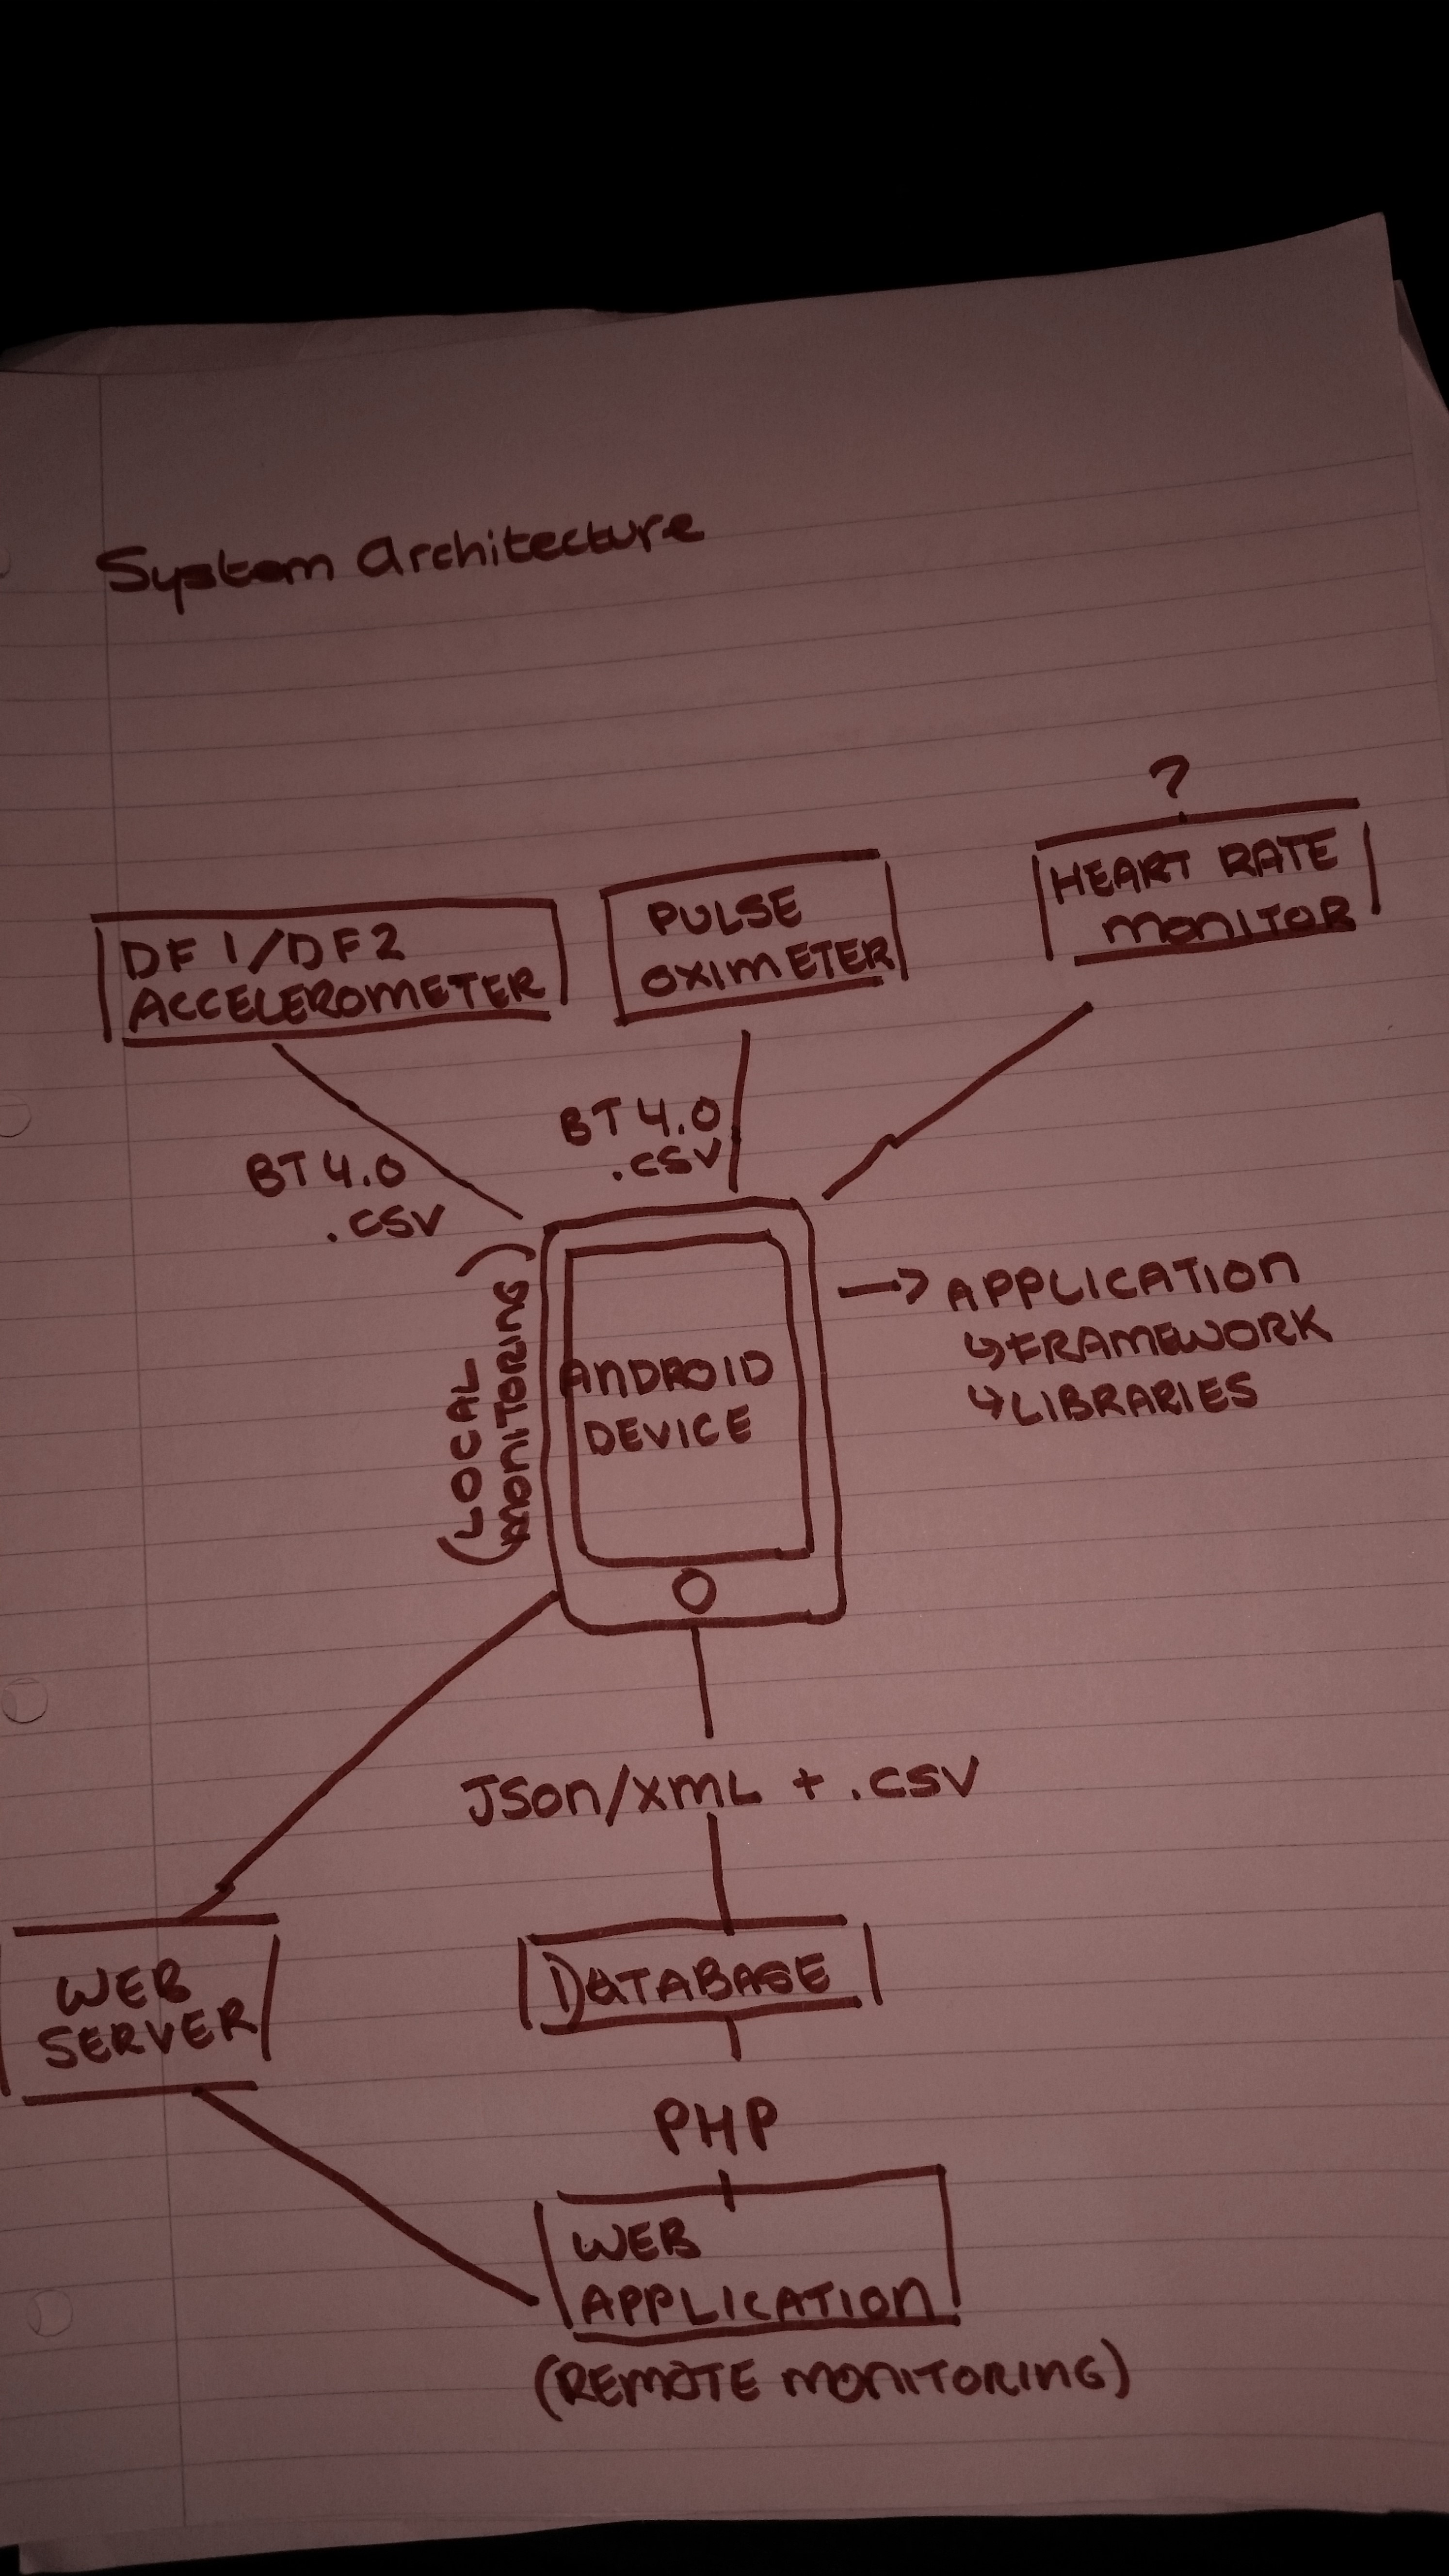 System Architecture
?
HEART RATE
MONITOR
PULSE
OXIMETER
DF1/DF2
ACCELEROMETER
BT 4.0
.CSV
BT 4.0
.CSV
(LOCAL
MONITORING)
ANDROID
DEVICE
→ APPLICATION
↳ FRAMEWORK
↳ LIBRARIES
JSON/XML + .CSV
WEB
SERVER
DATABASE
PHP
WEB
APPLICATION
(REMOTE MONITORING)